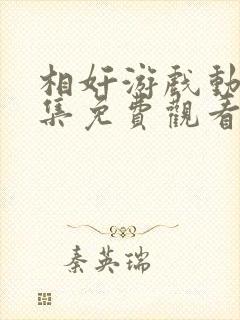 相奸游戏動
集免費觀看
秦英瑞